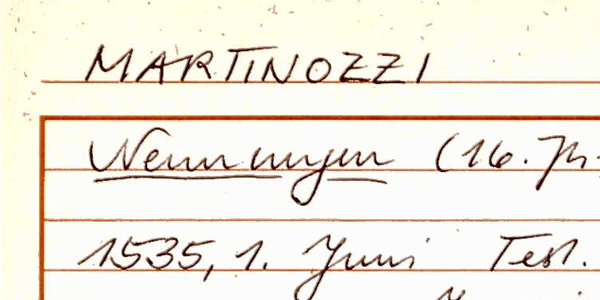 MARTINOZZI
Nennungen (16. Jh.
1535, 1. Juni Test.